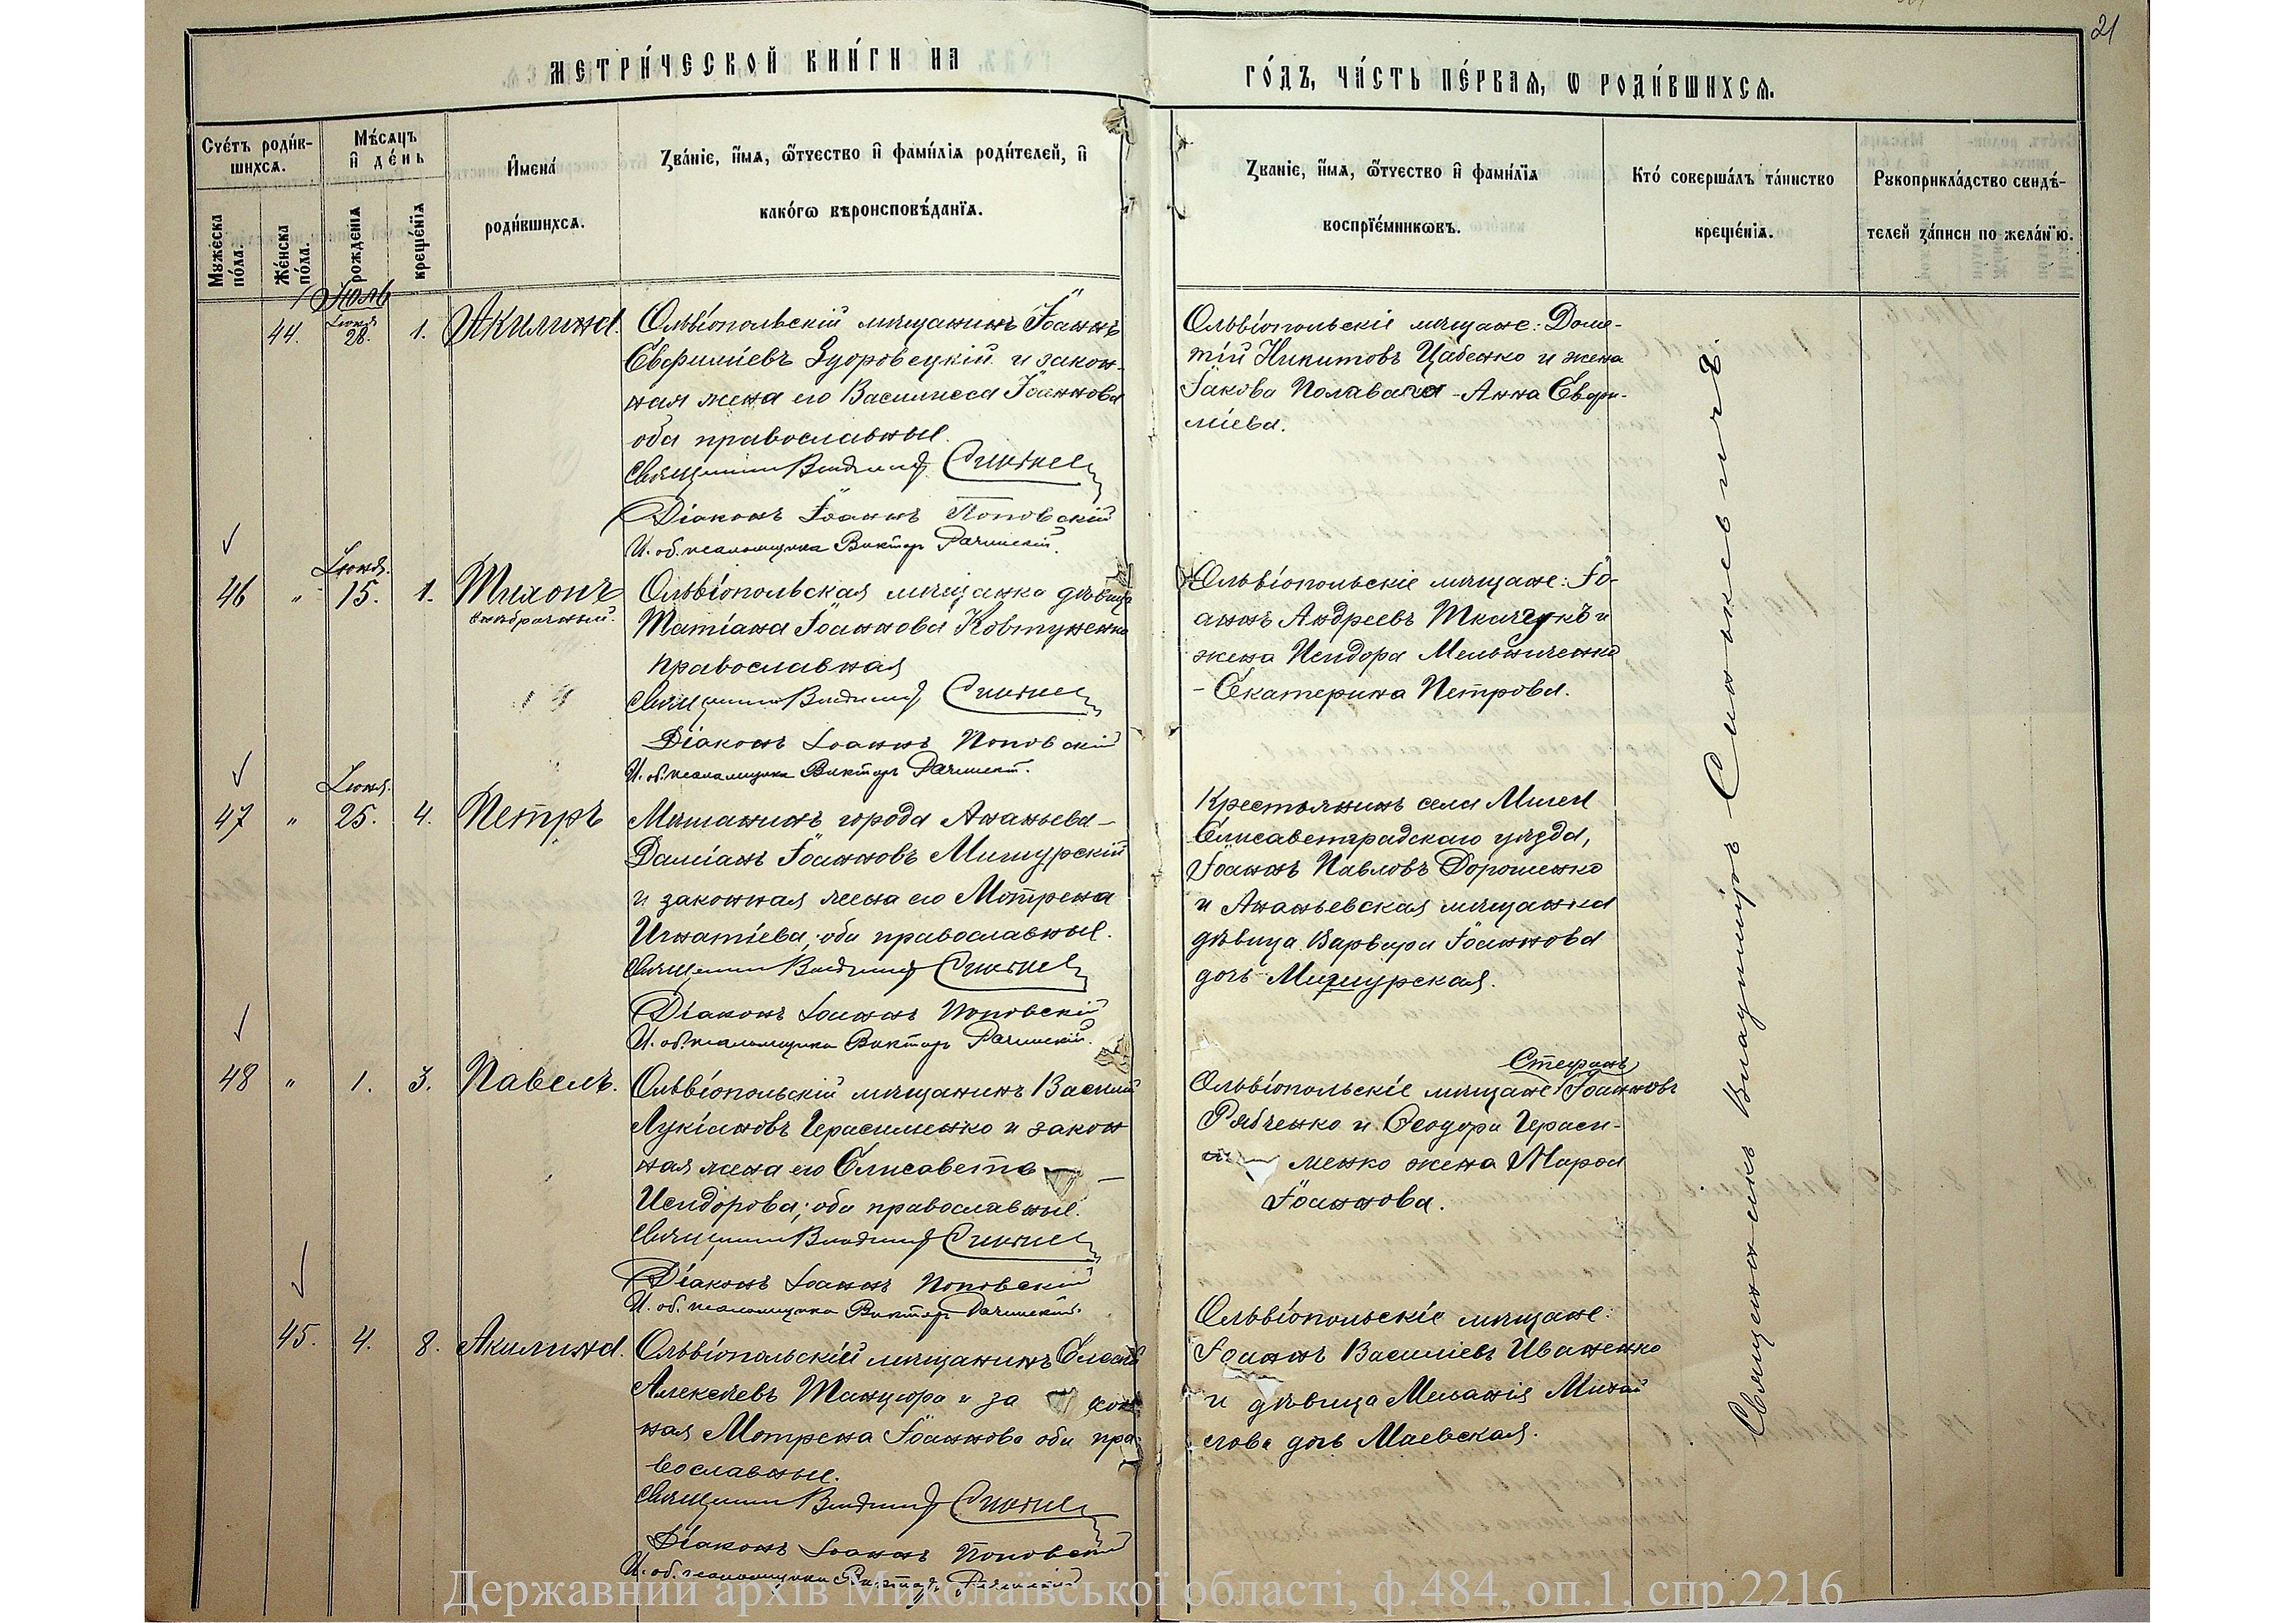 21
МЕТРИ́ЧЕСКОЙ КНИ́ГИ НА ГО́ДЪ, ЧА́СТЬ ПЕ́РВАѦ, Ѡ РОДИ́ВШИХСѦ.
Сче́тъ роди́в-
шихсѧ.
Мꙋ́жеска
по́ла.
Же́нска
по́ла.
Мѣ́сѧцъ
и҆ де́нь
рожде́нїѧ
креще́нїѧ
И҆мена̀
роди́вшихсѧ.
Зва́нїе, и҆́мѧ, ѻ҆́тчество и҆ фами́лїѧ роди́телей, и҆
како́гѡ вѣроисповѣ́данїѧ.
Зва́нїе, и҆́мѧ, ѻ҆́тчество и҆ фами́лїѧ
воспрїе́мникѡвъ.
Кто̀ соверша́лъ та́инство
креще́нїѧ.
Рꙋкоприкла́дство свидѣ́-
телей за́писи по жела́нїю.
Іюль
44. Іюня 28. 1. Акилина.
Ольвіопольскій мѣщанинъ Іоаннъ
Евфиміевъ Здоровецкій и закон-
ная жена его Василисса Іоаннова
оба православные.
Священникъ Владиміръ Синкевичъ
Діаконъ Іоаннъ Поповскій
И. об. псаломщика Викторъ Рачинскій.
Ольвіопольскіе мѣщане: Доме-
тій Никитовъ Цабенко и жена
Іакова Полавага - Анна Евфи-
міева.
46 " Іюня. 15. 1. Тихонъ
внѣбрачный.
Ольвіопольская мѣщанка дѣвица
Татіана Іоаннова Ковтуненко
православная
Священникъ Владиміръ Синкевичъ
Діаконъ Іоаннъ Поповскій
И. об. псаломщика Викторъ Рачинскій.
Ольвіопольскіе мѣщане: Іо-
аннъ Андреевъ Ткачукъ и
жена Исидора Мельниченко
- Екатерина Петрова.
47 " Іюня. 25. 4. Петръ
Мѣщанинъ города Ананьева -
Даміанъ Іоанновъ Мишурскій
и законная жена его Мотрена
Игнатіева; оба православные.
Священникъ Владиміръ Синкевичъ
Діаконъ Іоаннъ Поповскій
И. об. псаломщика Викторъ Рачинскій.
Крестьянинъ села Мигеи
Елисаветградскаго уѣзда,
Іоаннъ Павловъ Дорошенко
и Ананьевская мѣщанка
дѣвица Варвара Іоаннова
дочь Мишурская.
48 " 1. 3. Павелъ.
Ольвіопольскій мѣщанинъ Василій
Лукіановъ Герасименко и закон
ная жена его Елисавета -
Исидорова; оба православные.
Священникъ Владиміръ Синкевичъ
Діаконъ Іоаннъ Поповскій
И. об. псаломщика Викторъ Рачинскій.
Стефанъ
Ольвіопольскіе мѣщане: Іоанновъ
Рябченко и Ѳеодора Гераси-
менко жена Марѳа
Іоаннова.
45. 4. 8. Акилина.
Ольвіопольскій мѣщанинъ
Алексѣевъ Танцюра и за кон
ная Мотрена Іоаннова оба пра-
вославные.
Священникъ Владиміръ Синкевичъ
Діаконъ Іоаннъ Поповскій
И. об. псаломщика Викторъ Рачинскій
Ольвіопольскіе мѣщане:
Іоаннъ Василіевъ Иваненко
и дѣвица Меланія Михай
лова дочь Маевская.
Священникъ Владиміръ Синкевичъ.
Державний архів Миколаївської області, ф.484, оп.1, спр.2216